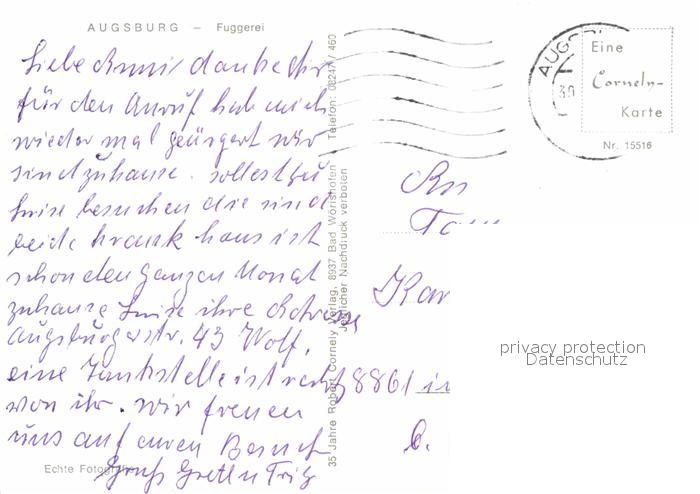 AUGSBURG – Fuggerei
Liebe Anni danke dir
für den Anruf hab mich
wieder mal geärgert wir
sind zuhause. sollest zu
Luise besuchen die sind
beide krank haus ist
schon den ganzen Monat
zuhause Luise ihre Adresse
Augsburgerstr. 43 Wolf,
eine Tankstelle ist rechts
von ihr. wir freuen
uns auf euren Besuch
Gruß Gretl u Fritz
Echte Fotografie
35 Jahre Robert Cornely Verlag, 8937 Bad Wörishofen Telefon: 08247 / 460
Jeglicher Nachdruck verboten
AUGS
30
Eine
Cornely-
Karte
Nr. 15516
An
Kar
8861 in
b.
privacy protection
Datenschutz